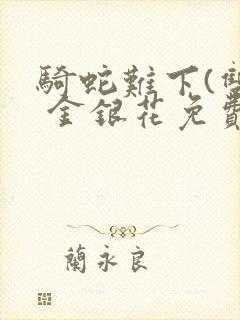 騎蛇難下(雙
金銀花免費
蘭永良